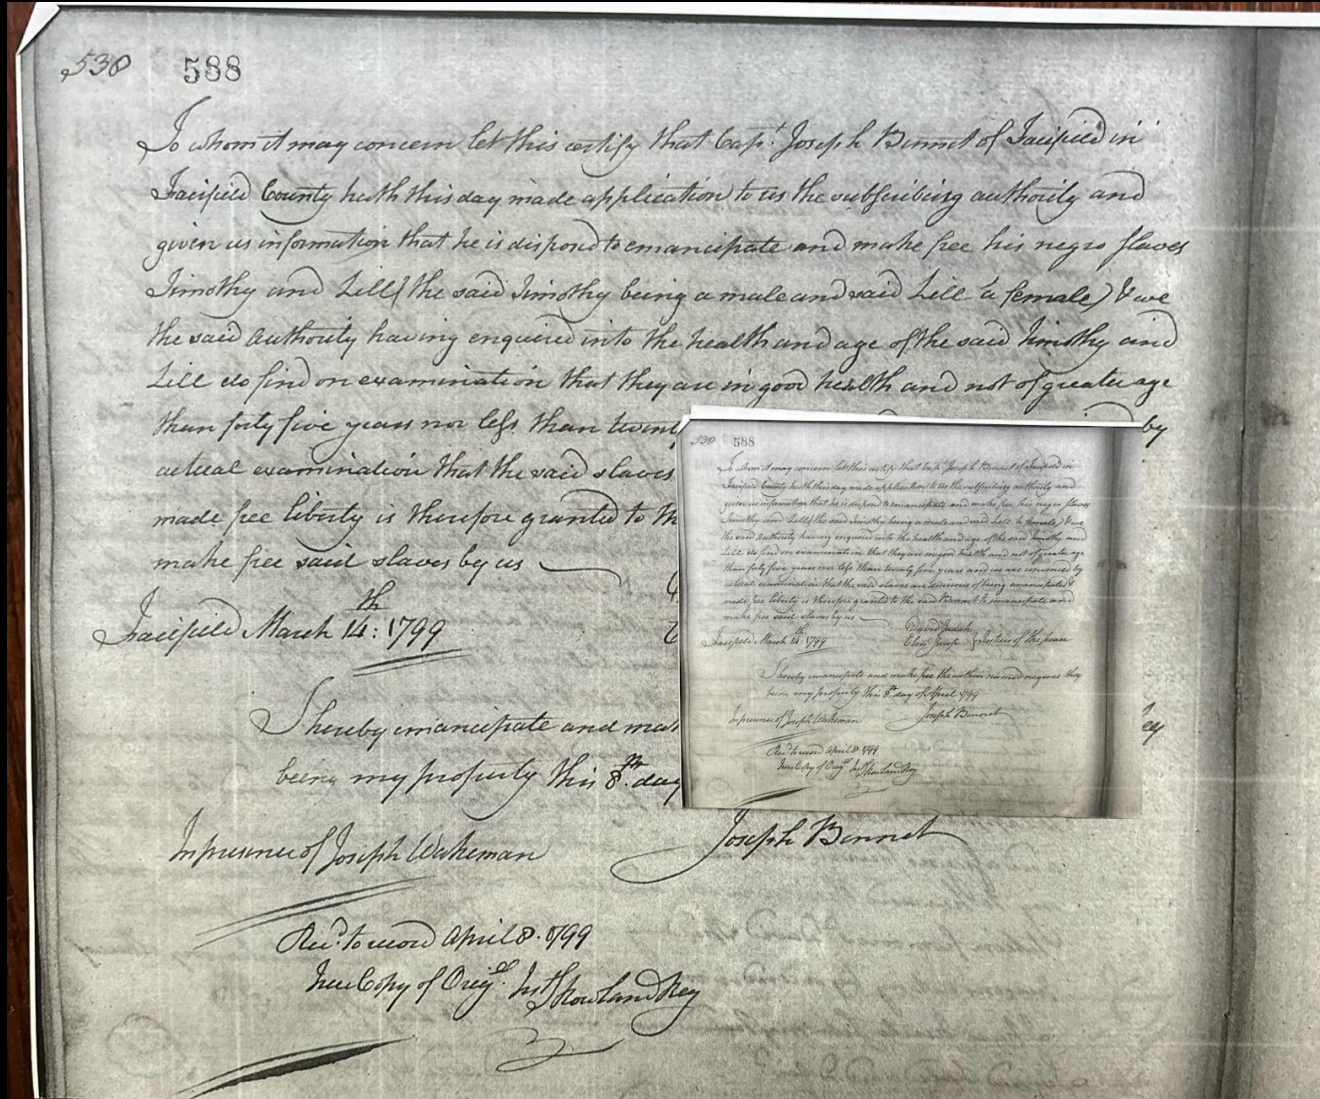 530 588
To whom it may concern let this certify that Capt. Joseph Bennet of Fairfield in
Fairfield County hath this day made application to us the subscribing authority and
given us information that he is disposd to emancipate and make free his negro slaves
Timothy and Lill (the said Timothy being a male and said Lill a female) & we
the said Authority having enquired into the health and age of the said Timothy and
Lill do find on examination that they are in good health and not of greater age
than forty five years nor less than twenty
by
actual examination that the said slaves
made free liberty is therefore granted to th
make free said slaves by us
Fairfield March 14th: 1799
I hereby emancipate and mak
ey
being my property this 8th. day
In presence of Joseph Wakeman Joseph Bennet
Recd. to record April 8. 1799
True Copy of Origl. Test Rowland Reg
530 588
To whom it may concern let this certify that Capt. Joseph Bennet of Fairfield in
Fairfield County hath this day made application to us the subscribing authority and
given us information that he is disposd to emancipate and make free his negro slaves
Timothy and Lill (the said Timothy being a male and said Lill a female) & we
the said Authority having enquired into the health and age of the said Timothy and
Lill do find on examination that they are in good health and not of greater age
than forty five years nor less than twenty five years and we are convinced by
actual examination that the said slaves are desirous of being emancipated &
made free liberty is therefore granted to the said Bennet to emancipate and
make free said slaves by us
David Judah
Fairfield March 14th: 1799 Justices of the peace
I hereby emancipate and make free the within named negroes they
being my property this 8th day of April 1799
In presence of Joseph Wakeman Joseph Bennet
Recd. to record April 8 1799
True Copy of Origl. Test Rowland Reg